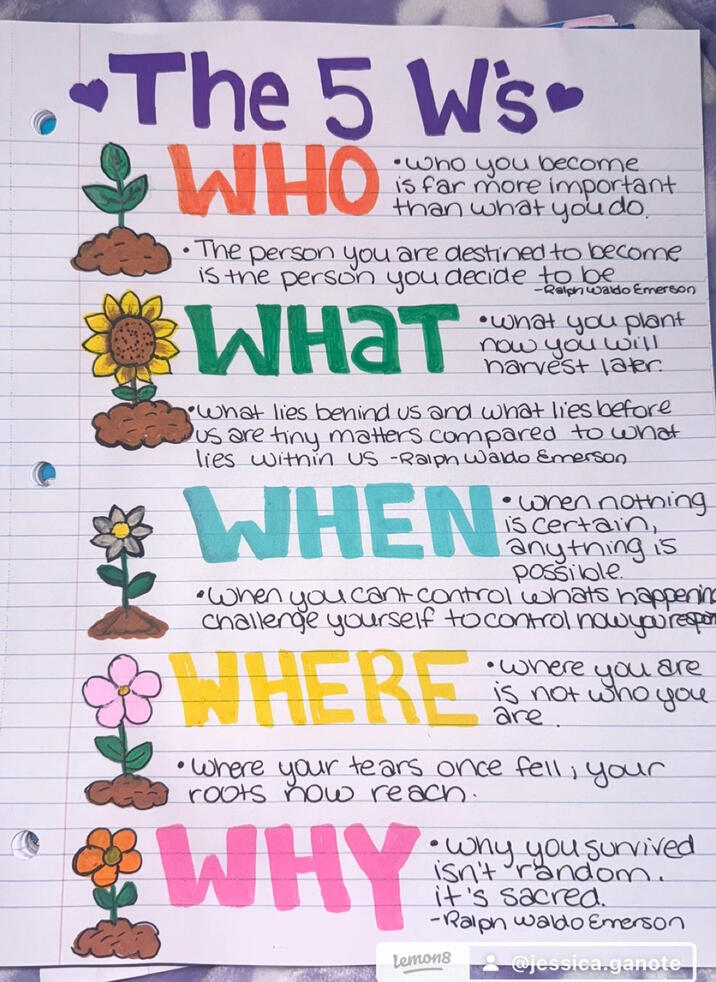 The 5 W's
WHO
•who you become
is far more important
than what you do.
•The person you are destined to become
is the person you decide to be
-Ralph Waldo Emerson
WHaT
•what you plant
now you will
harvest later.
•what lies behind us and what lies before
us are tiny matters compared to what
lies within us -Ralph Waldo Emerson
WHEN
•when nothing
is certain,
anything is
possible.
•when you cant control whats happening
challenge yourself to control how you
WHERE
•where you are
is not who you
are.
•where your tears once fell, your
roots now reach.
WHY
•why you survived
isn't random.
it's sacred.
-Ralph Waldo Emerson
lemon8 @jessica.ganote